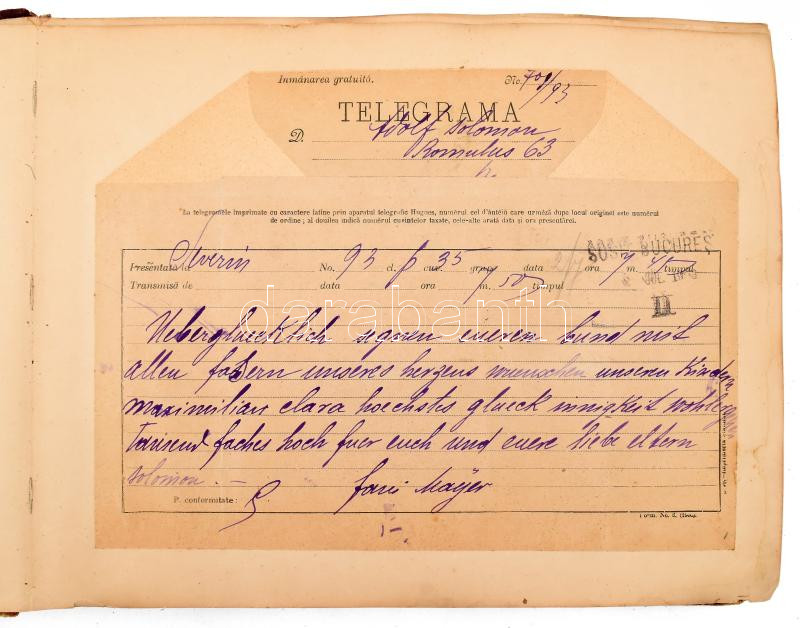 Inmânarea gratuită. No. 709/93
TELEGRAMA
D. Adolf Solomon
Romulus 63
La telegramele imprimate cu caractere latine prin aparatul telegrafic Hugnes, numĕrul cel d'ântêiŭ care urmĕză dupo locul originei este numĕrul
de ordine; al douilea indică numĕrul cuvintelor taxate, cele-alte arată data și ora presentărei.
SOSIT BUCUREȘ
Presentată la Severin No. 93 cl. cuv. 35 grupe data 2/7 ora 7 m. timpul
JUL
Transmisă de data ora m. 50 timpul
II
darabanth
Uebergluecklich segnen eueren bund mit
allen fasern unseres herzens wuenschen unseren Kindern
maximilian clara hoechstes glueck innigkeit wohlergehen
tausend faches hoch fuer euch und euere liebe eltern
solomon. —
fani Mayer
P. conformitate: